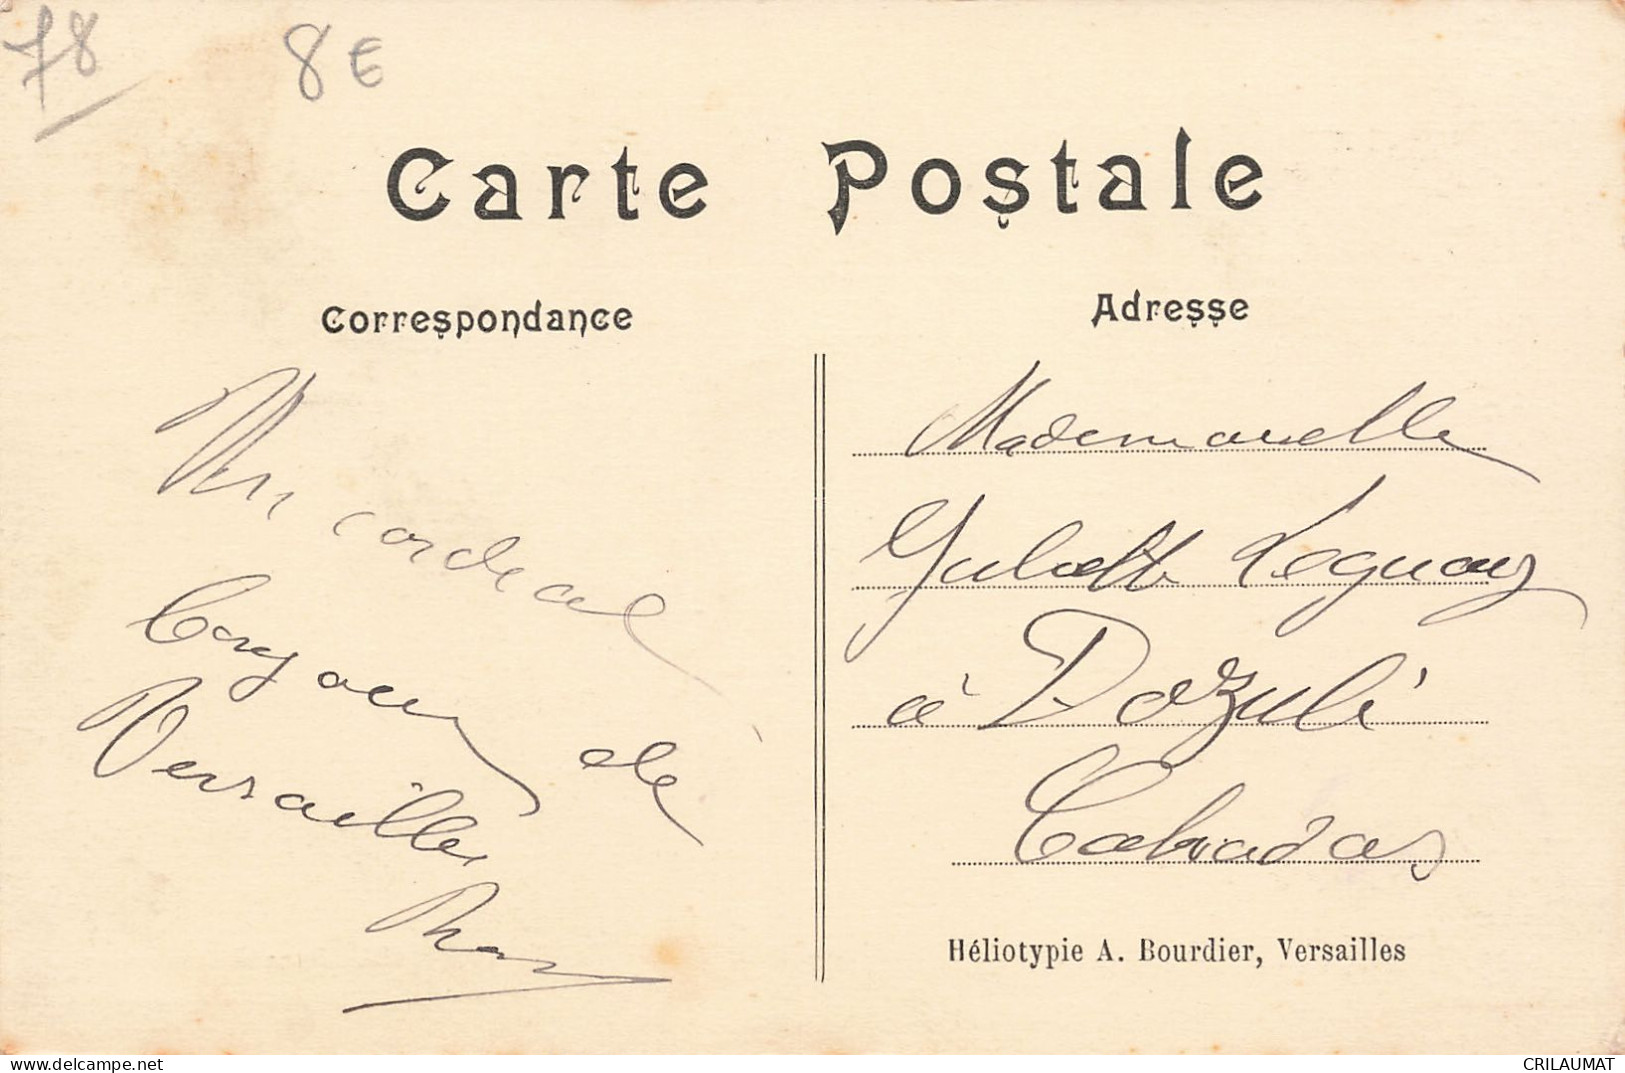 78
8 €
Carte Postale
Correspondance
Adresse
Un cordial
bonjour de
Versailles
Mademoiselle
Juliette Leguay
à Dozulé
Calvados
Héliotypie A. Bourdier, Versailles
www.delcampe.net
CRILAUMAT